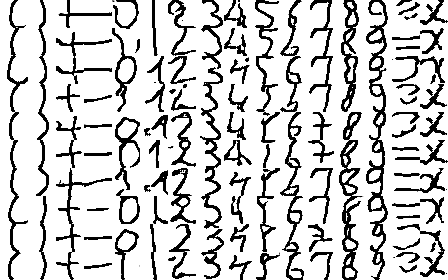 ( ) + - 0 1 2 3 4 5 6 7 8 9 = x
( ) + - , 1 2 3 4 5 6 7 8 9 = x
( ) + - 0 1 2 3 4 5 6 7 8 9 = x
( ) + - 1 2 3 4 5 6 7 8 9 = x
( ) + - 0 1 2 3 4 5 6 7 8 9 = x
( ) + - 0 1 2 3 4 5 6 7 8 9 = x
( ) + - 1 2 3 4 5 6 7 8 9 = x
( ) + - 0 1 2 3 4 5 6 7 8 9 = x
( ) + - 0 1 2 3 4 5 6 7 8 9 = x
( ) + - 1 2 3 4 5 6 7 8 9 = x